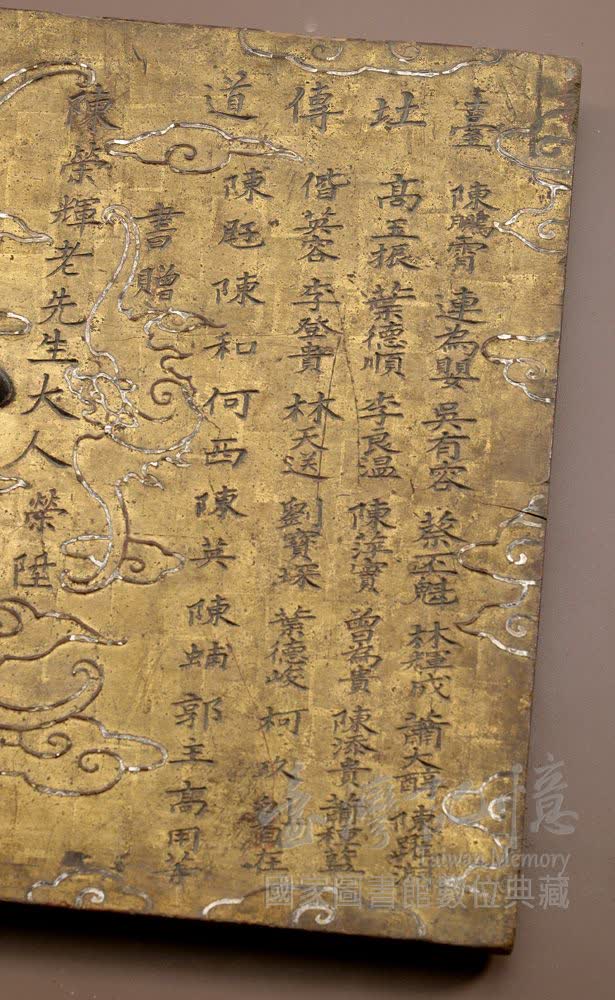 臺 陳鵬霄 連為嬰 吳有容 蔡丕魁 林輝成 蕭大醇 陳
址 高玉振 葉德順 李良温 陳萍實 曾為貴 陳添貴
傳 偕英容 李登貴 林天送 劉寶琛 葉德峻 柯玖
道 陳 陳和 何西 陳英 陳蜅 郭王 高用華
書贈
陳榮輝老先生大人
榮陞
Taiwan Memory
國家圖書館數位典藏